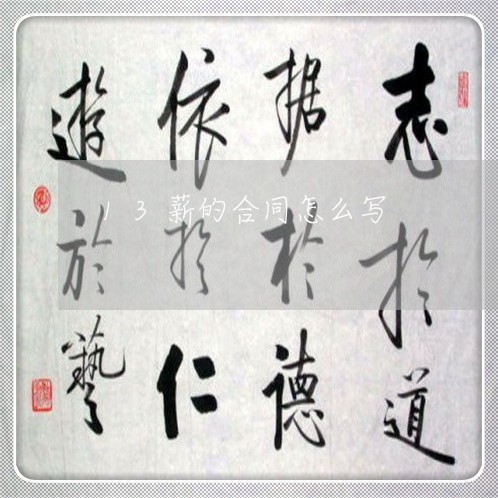 志於道
据於德
依於仁
遊於藝
13薪的合同怎么写